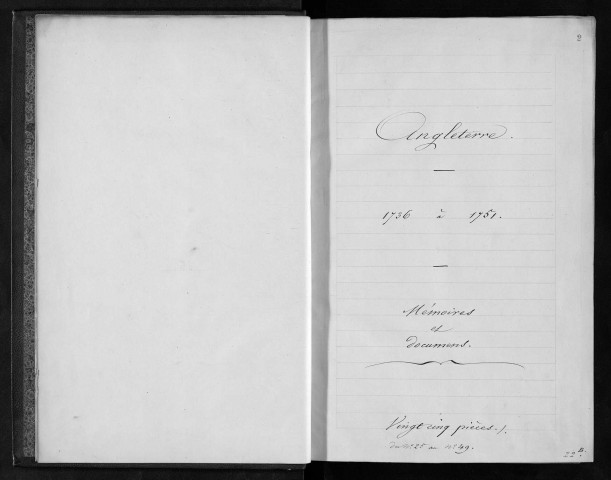 2
Angleterre.
1736 à 1751.
Mémoires
et
documens.
Vingt cinq pièces./.
du n° 25 au n° 49.